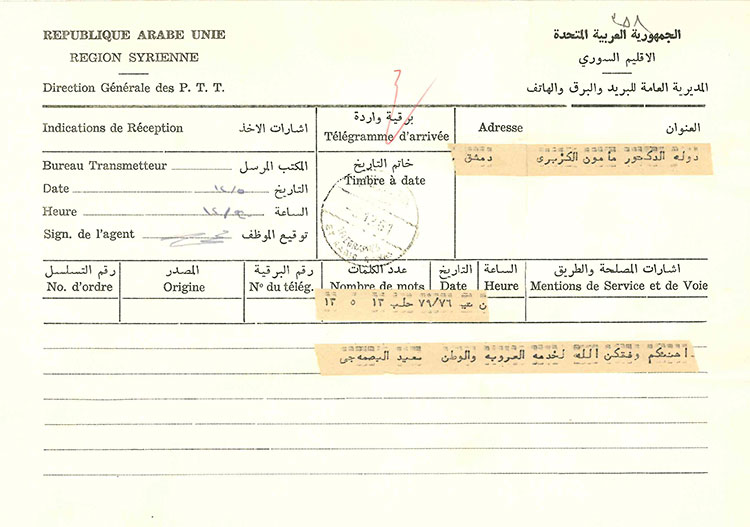 ٣٥٨
REPUBLIQUE ARABE UNIE
الجمهورية العربية المتحدة
REGION SYRIENNE
الاقليم السوري
Direction Générale des P. T. T.
المديرية العامة للبريد والبرق والهاتف
Indications de Réception اشارات الاخذ
برقية واردة
Télégramme d'arrivée
Adresse العنوان
دوله الدكتور مامون الكزبرى دمشق .
Bureau Transmetteur المكتب المرسل
خاتم التاريخ
Timbre à date
Date ١٢/٥ التاريخ
Heure الساعة
Sign. de l'agent توقيع الموظف
رقم التسلسل المصدر رقم البرقية عدد الكلمات التاريخ الساعة اشارات المصلحة والطريق
No. d'ordre Origine No du télég. Nombre de mots Date Heure Mentions de Service et de Voie
٧٩/٧٦ حلب ١٣ ٥ ١٣
أهنئكم وفتكن الله لخدمه العروبه والوطن سعيد البصمه جى